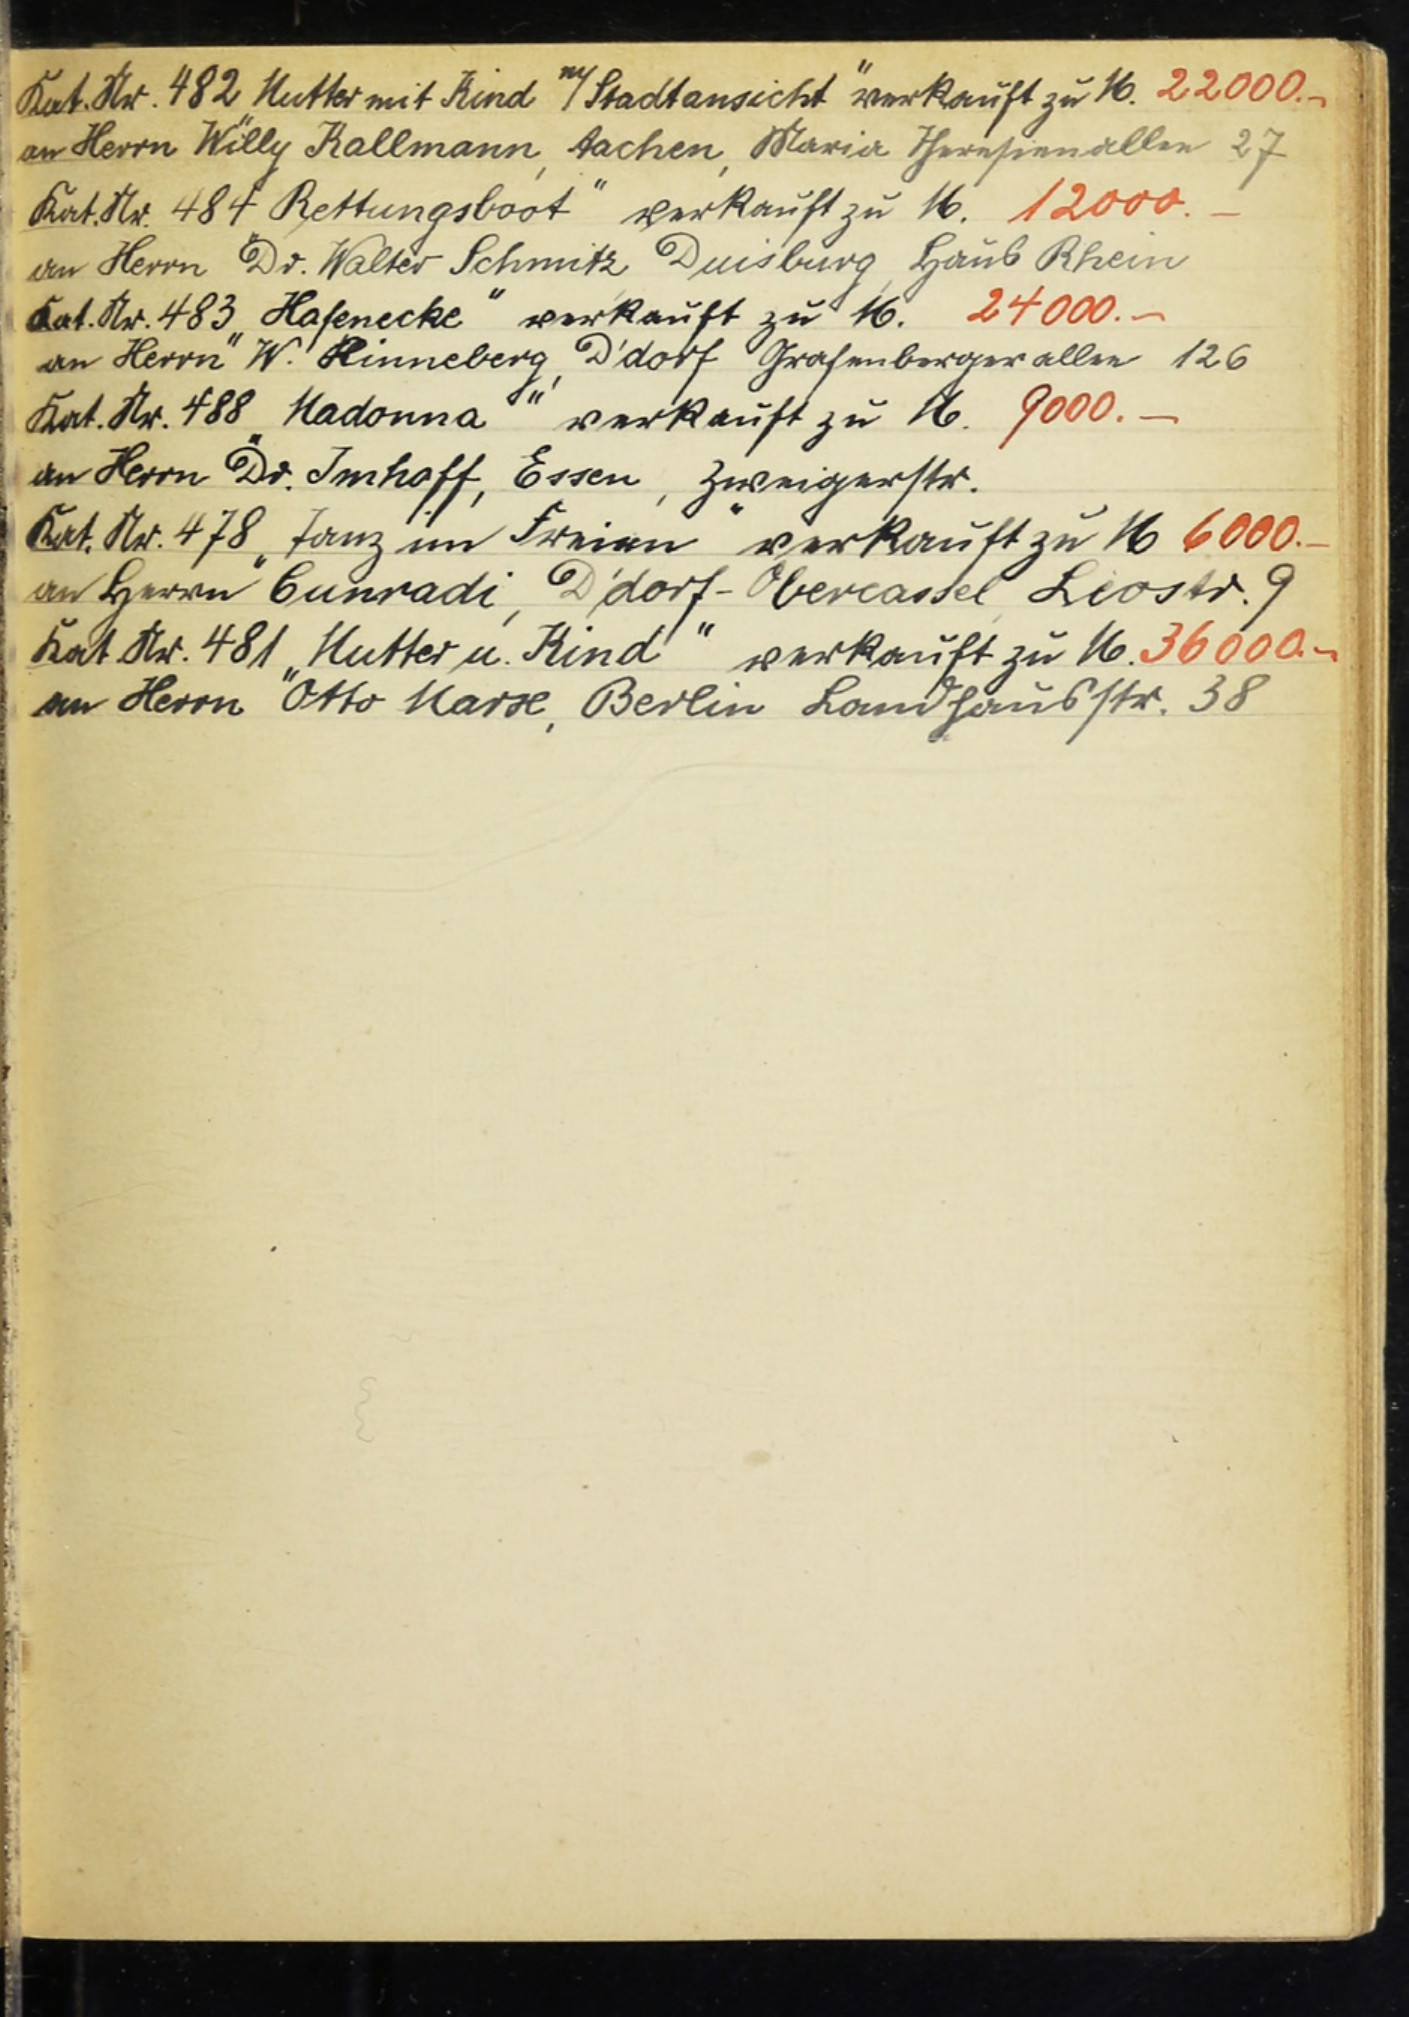 Kat. Nr. 482 „Mutter mit Kind m/Stadtansicht" verkauft zu M. 22000.–
an Herrn Willy Kallmann, Aachen, Maria Theresienallee 27
Kat. Nr. 484 „Rettungsboot" verkauft zu M. 12000.–
an Herrn Dr. Walter Schmitz Duisburg, Haus Rhein
Kat. Nr. 483 „Hafenecke" verkauft zu M. 24000.–
an Herrn W. Rinneberg, D'dorf Grafenbergerallee 126
Kat. Nr. 488 „Madonna" verkauft zu M. 9000.–
an Herrn Dr. Imhoff, Essen, Zweigerstr.
Kat. Nr. 478 „Tanz im Freien" verkauft zu M 6000.–
an Herrn Cunradi, D'dorf-Obercassel Leostr. 9
Kat Nr. 481 „Mutter u. Kind" verkauft zu M. 36000.–
an Herrn Otto Marx, Berlin Landhausstr. 38